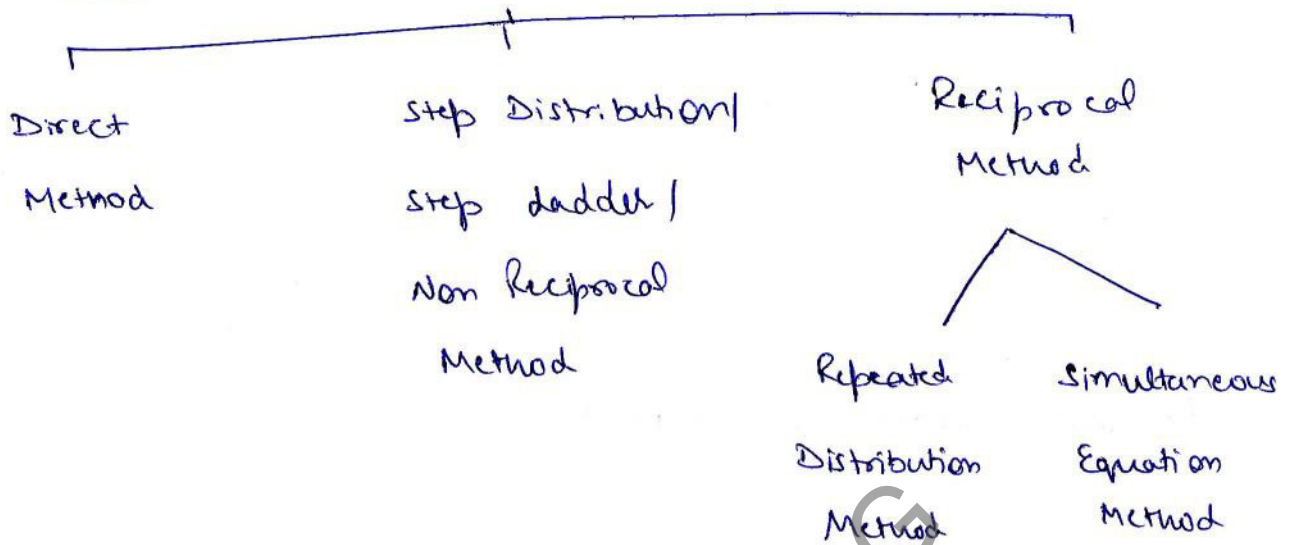 Direct
Method
Step Distribution/
Step Ladder/
Non Reciprocal
Method
Reciprocal
Method
Repeated
Distribution
Method
Simultaneous
Equation
Method